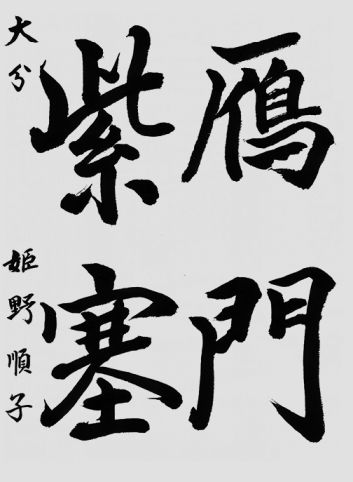 鴈門
紫塞
大分 姫野順子